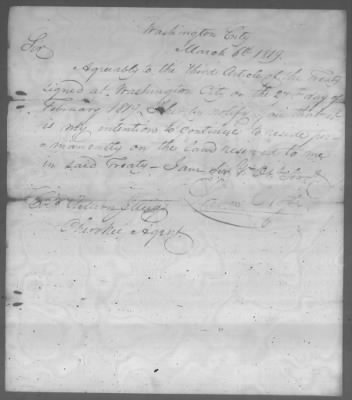 Washington City
March 6th 1819.
Sir
Agreeably to the third Article of the Treaty
signed at Washington City on the 27th day of
February 1819. I hereby notify you that it
is my intention to continue to reside per=
manently on the land reserved to me
in said Treaty — I am Sir Yr Ob
Return J Meigs
Cherokee Agent